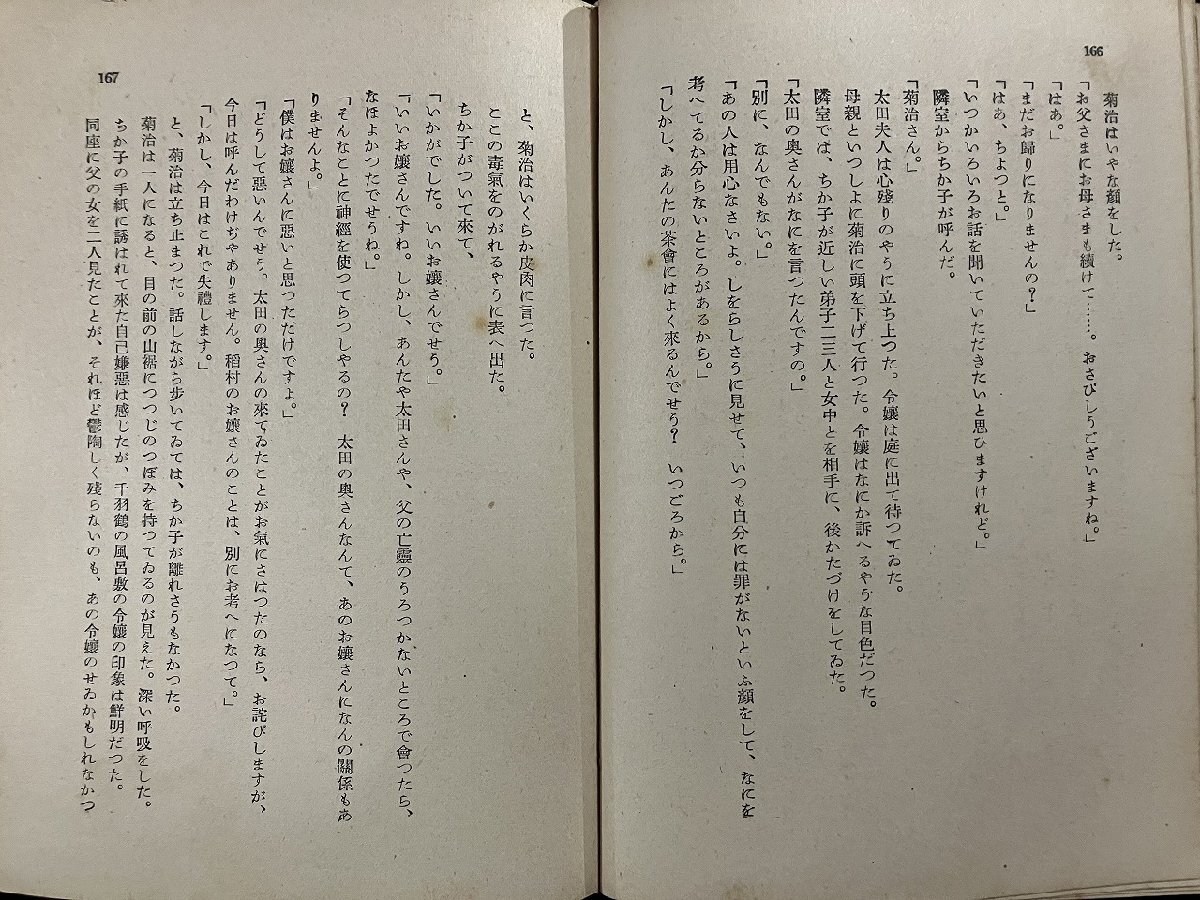 166
菊治はいやな顏をした。
「お父さまにお母さまも續けて……。おさびしうございますね。」
「はあ。」
「まだお歸りになりませんの？」
「はあ、ちよつと。」
「いつかいろいろお話を聞いていただきたいと思ひますけれど。」
隣室からちか子が呼んだ。
「菊治さん。」
太田夫人は心殘りのやうに立ち上つた。令孃は庭に出て待つてゐた。
母親といつしよに菊治に頭を下げて行つた。令孃はなにか訴へるやうな目色だつた。
隣室では、ちか子が近しい弟子二三人と女中とを相手に、後かたづけをしてゐた。
「太田の奧さんがなにを言つたんですの。」
「別に、なんでもない。」
「あの人は用心なさいよ。しをらしさうに見せて、いつも自分には罪がないといふ顏をして、なにを
考へてるか分らないところがあるから。」
「しかし、あんたの茶會にはよく來るんでせう？　いつごろから。」
167
と、菊治はいくらか皮肉に言つた。
とこの毒氣をのがれるやうに表へ出た。
ちか子がついて來て、
「いかがでした。いいお孃さんでせう。」
「いいお孃さんですね。しかし、あんたや太田さんや、父の亡靈のうろつかないところで會つたら、
なほよかつたでせうね。」
「そんなことに神經を使つてらつしやるの？　太田の奧さんなんて、あのお孃さんになんの關係もあ
りませんよ。」
「僕はお孃さんに惡いと思つただけですよ。」
「どうして惡いんでせう。太田の奧さんの來てゐたことがお氣にさはつたのなら、お詫びしますが、
今日は呼んだわけぢやありません。稻村のお孃さんのことは、別にお考へになつて。」
「しかし、今日はこれで失禮します。」
と、菊治は立ち止まつた。話しながら歩いてゐては、ちか子が離れさうもなかつた。
菊治は一人になると、目の前の山裾につつじのつぼみを持つてゐるのが見えた。深い呼吸をした。
ちか子の手紙に誘はれて來た自己嫌惡は感じたが、千羽鶴の風呂敷の令孃の印象は鮮明だつた。
同座に父の女を二人見たことが、それほど鬱陶しく殘らないのも、あの令孃のせゐかもしれなかつ